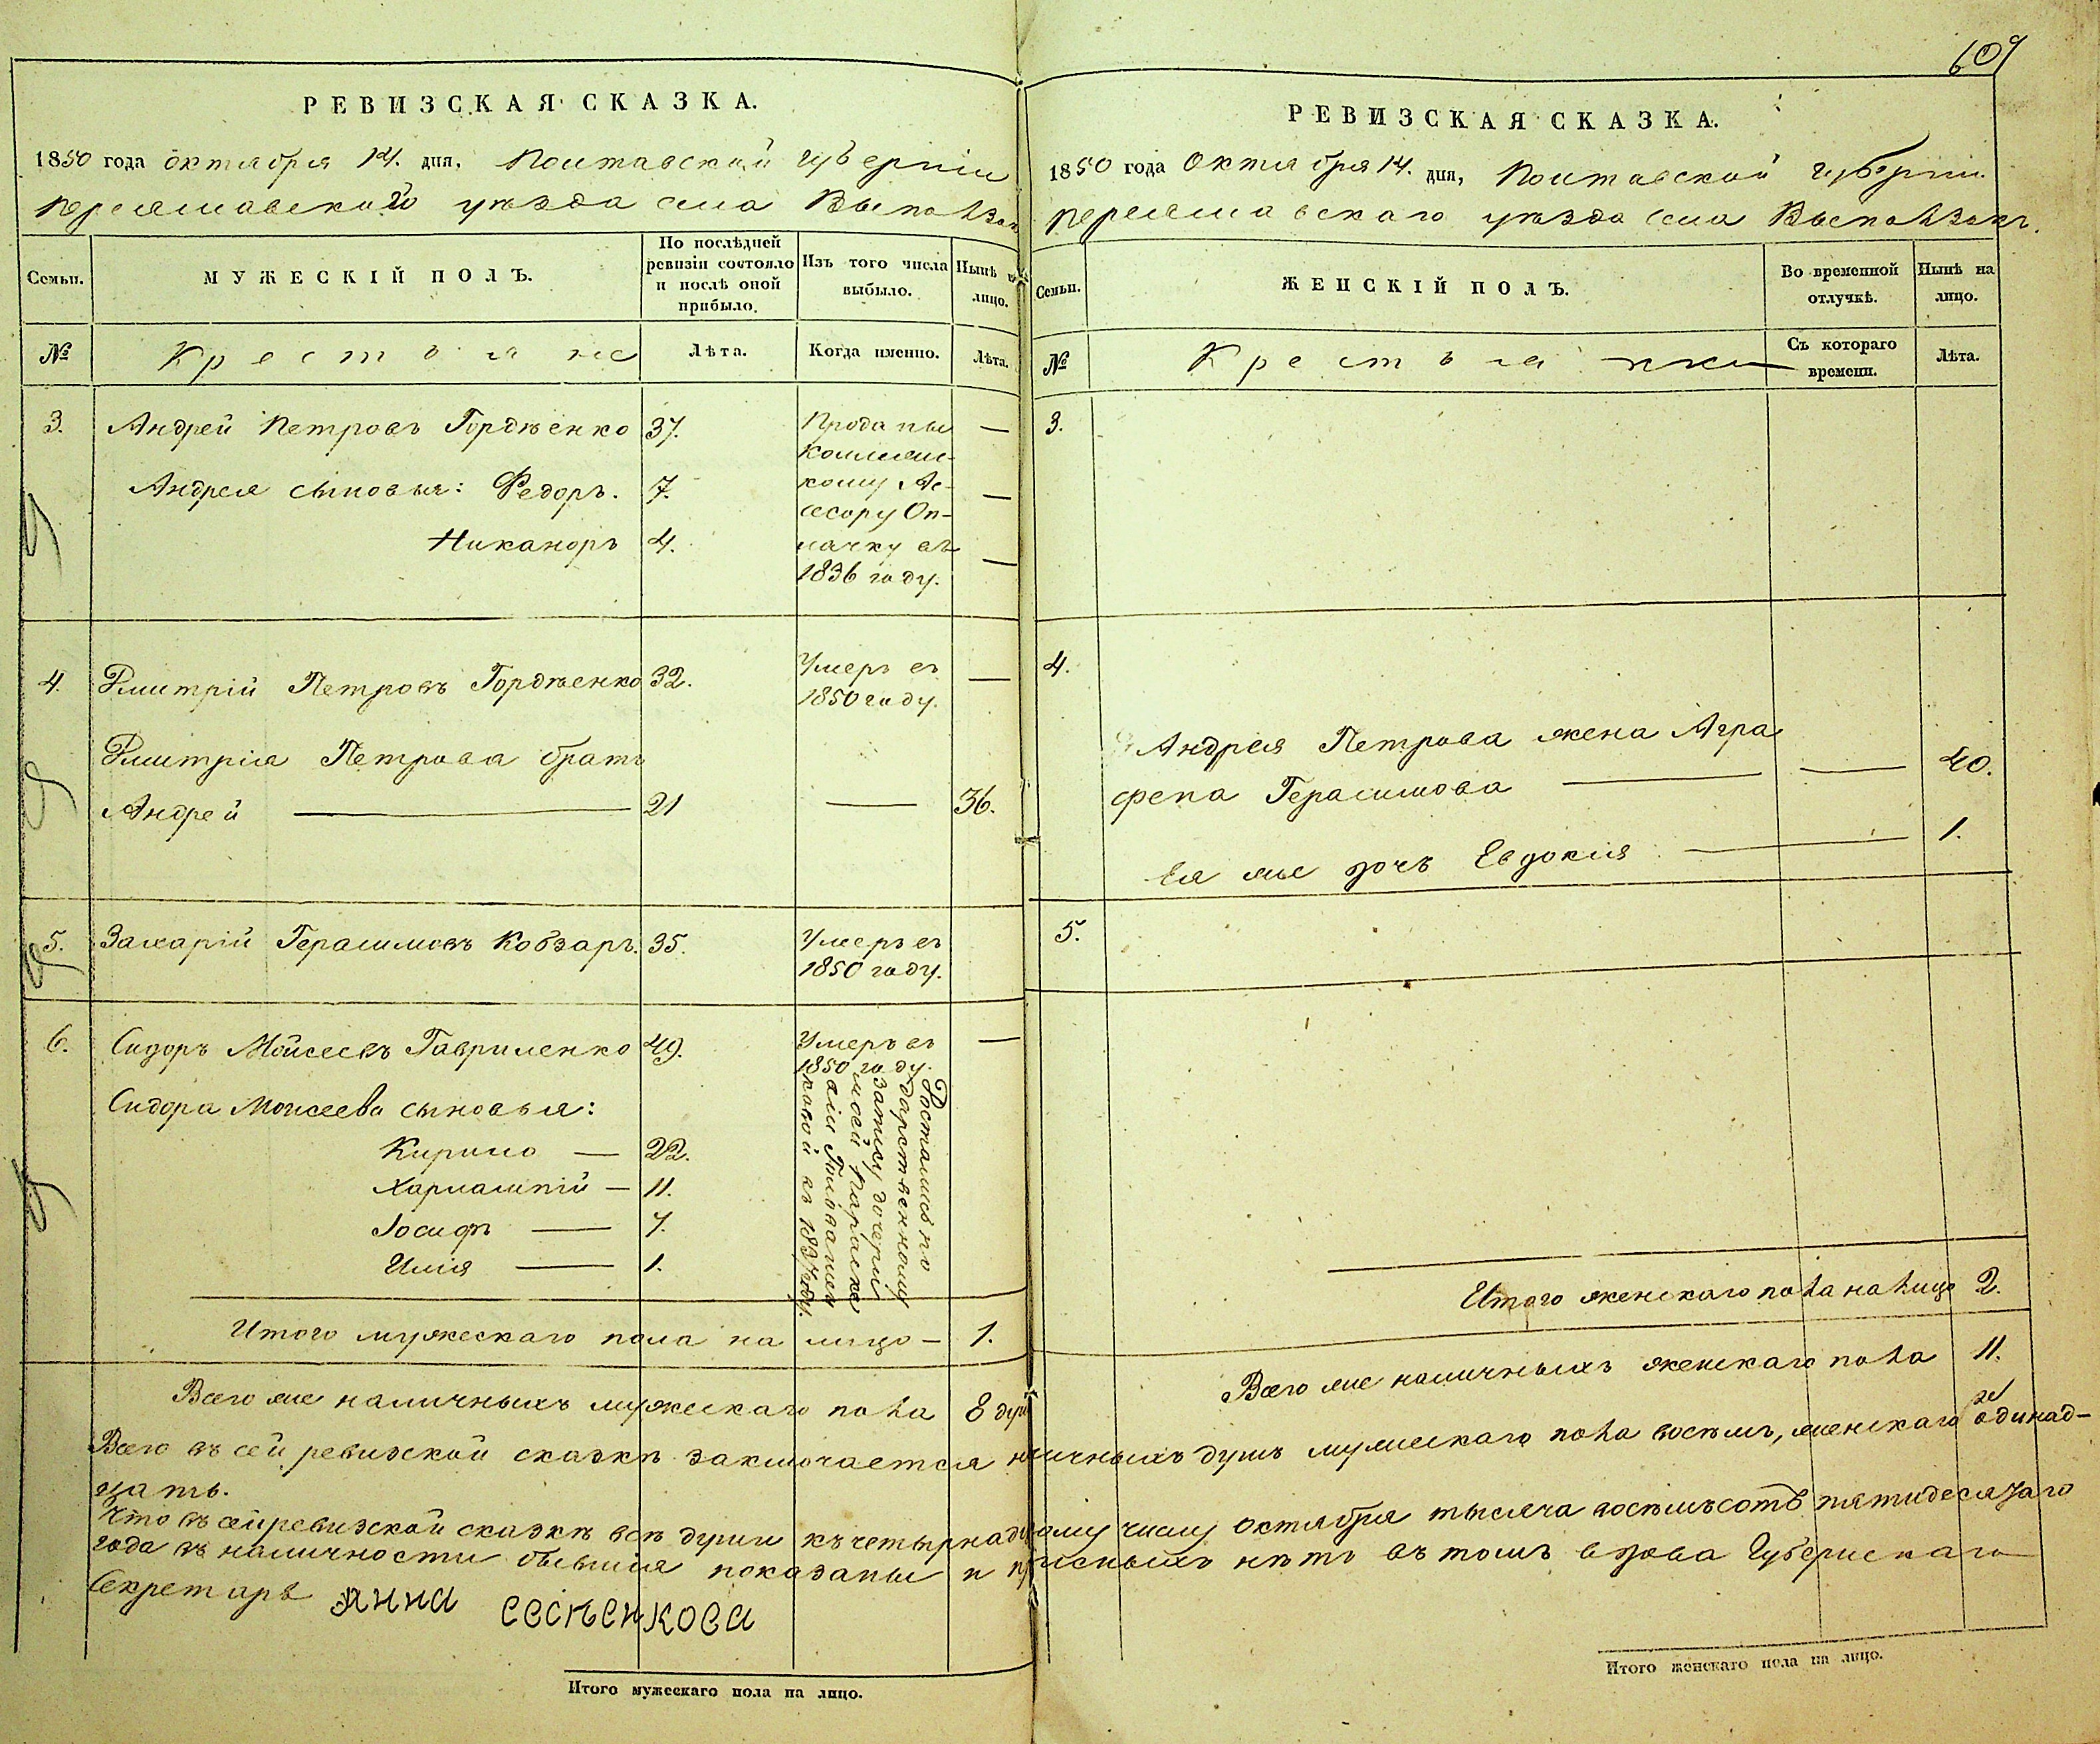 609
РЕВИЗСКАЯ СКАЗКА.
1850 года октября 14. дня, Полтавской губерніи
Переяславскаго уѣзда села Выползок
Семьи.
МУЖЕСКІЙ ПОЛЪ.
По послѣдней ревизіи состояло и послѣ оной прибыло.
Изъ того числа выбыло.
Нынѣ на лицо.
№
Крестьяне
Лѣта.
Когда именно.
Лѣта.
3. Андрей Петровъ Гордѣенко 37. Проданы —
коллежс-
Андрея сыновья: Федоръ. 7. кому Ас- —
сесору Оп-
Никаноръ 4. лачку въ —
1836 году.
4. Дмитрій Петровъ Гордѣенко 32. Умеръ въ —
1850 году.
Дмитрія Петрова братъ
Андрей — 21 — 36.
5. Захарій Герасимовъ Кобзарь. 35. Умеръ въ
1850 году.
6. Сидоръ Мойсеевъ Гавриленко 49. Умеръ въ —
1850 году.
Сидора Моисеева сыновья:
Кирило — 22.
Харлампій — 11.
Іосифъ — 7.
Илія — 1.
Достались по
дарственному
запису дочери
моей Параске
віи
ковой въ 1837 году.
Итого мужескаго пола на лицо — 1.
Всего же наличныхъ мужескаго пола 8 душ
РЕВИЗСКАЯ СКАЗКА.
1850 года Октября 14. дня, Полтавской губерніи
Переяславскаго уѣзда села Выползокъ.
Семьи.
ЖЕНСКІЙ ПОЛЪ.
Во временной отлучкѣ.
Нынѣ на лицо.
№
Крестьянки
Съ котораго времени.
Лѣта.
3.
4.
Андрея Петрова жена Агра
фена Герасимова — — 40.
Ея же дочь Евдокія — 1.
5.
Итого женскаго пола на лицо 2.
Всего же наличныхъ женскаго пола 11.
Всего въ сей ревизской сказкѣ заключается наличныхъ душъ мужескаго пола восѣмъ, женскаго же одинад-
цать.
Что въ сей ревизской сказкѣ всѣ души къ четырнадцатому числу Октября тысяча восѣмьсотъ пятидесятаго
года въ наличности бывшія показаны и прописныхъ нѣтъ въ томъ вдова Губернскаго
Секретаря Анна Евсѣенкова
Итого мужескаго пола на лицо.
Итого женскаго пола на лицо.